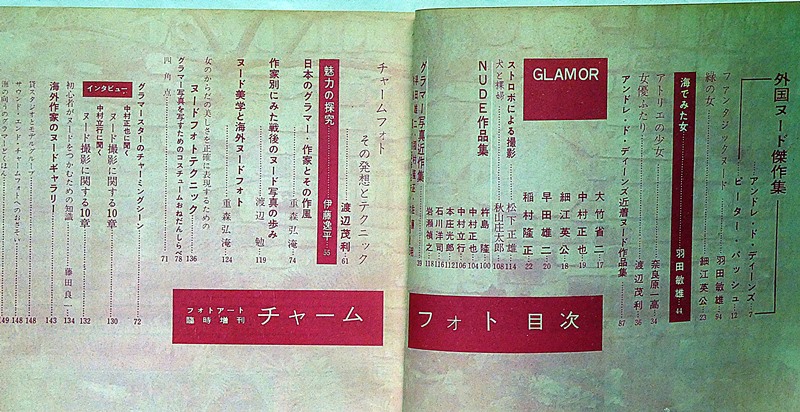 外国ヌード傑作集
アンドレ・ド・ディーンズ 7
ピーター・バッシュ 12
ファンタジックヌード 羽田敏雄 94
緑の女 細江英公 23
海でみた女 羽田敏雄 44
アトリエの少女 奈良原一高 34
女優ふたり 渡辺茂利 36
アンドレ・ド・ディーンズ近着ヌード作品集 87
GLAMOR
大竹省二 17
中村正也 19
細江英公 18
早田雄二 20
稲村隆正 22
ストロボによる撮影 松下正雄 114
犬と裸婦 秋山庄太郎 108
NUDE作品集
杵島隆 100
中村正也 104
本庄光郎 106
中村立行 112
石川洋司 116
岩瀬禎之 118
グラマー写真近作集
チャームフォト
その発想とテクニック 渡辺茂利 61
魅力の探究 伊藤逸平 55
日本のグラマー・作家とその作風 重森弘淹 74
作家別にみた戦後のヌード写真の歩み 渡辺勉 119
ヌード美学と海外ヌードフォト 重森弘淹 124
女のからだの美しさを正確に表現するための
ヌードフォトテクニック 136
グラマー写真を写すためのコスチュームおねだんしらべ 78
四角点 71
グラマースターのチャーミングシーン 72
インタビュー
中村正也に聞く
ヌード撮影に関する10章 130
中村立行に聞く
ヌード撮影に関する10章 132
初心者がヌードをつかむための知識 藤田良一 134
海外作家のヌードギャラリー 143
貸スタジオとモデルグループ 148
サウンド・エンド・チャームフォトへのおさそい 148
149
フォトアート
臨時増刊
チャーム
フォト 目次